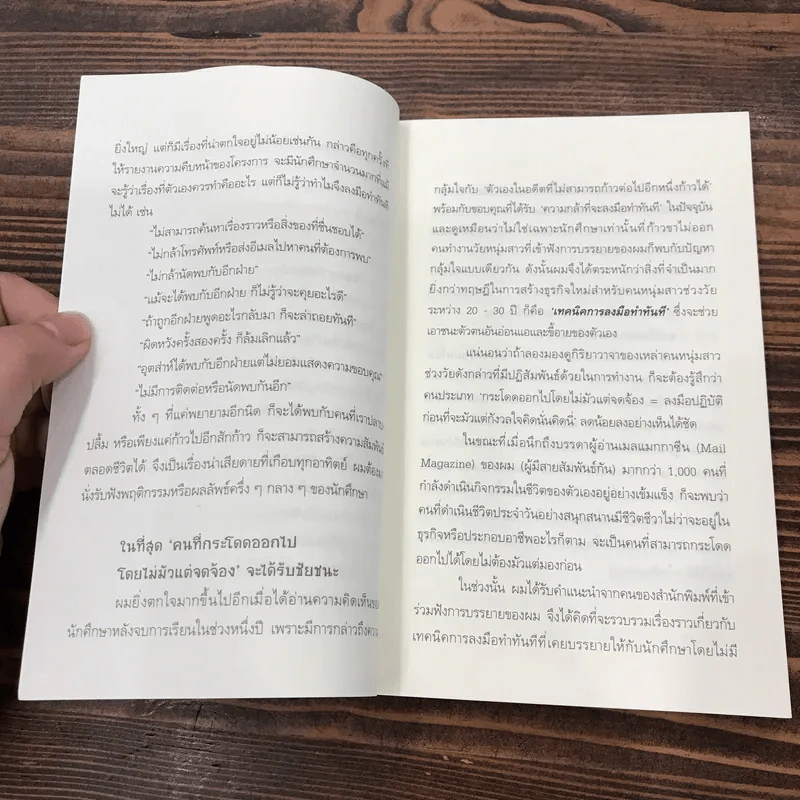 ยิ่งใหญ่ แต่ก็มีเรื่องที่น่าตกใจอยู่ไม่น้อยเช่นกัน กล่าวคือทุกครั้งที่
ให้รายงานความคืบหน้าของโครงการ จะมีนักศึกษาจำนวนมากที่แม้
จะรู้ว่าเรื่องที่ตัวเองควรทำคืออะไร แต่ก็ไม่รู้ว่าทำไมจึงลงมือทำทันที
ไม่ได้ เช่น
“ไม่สามารถค้นหาเรื่องราวหรือสิ่งของที่ชื่นชอบได้”
“ไม่กล้าโทรศัพท์หรือส่งอีเมลไปหาคนที่ต้องการพบ”
“ไม่กล้านัดพบกับอีกฝ่าย”
“แม้จะได้พบกับอีกฝ่าย ก็ไม่รู้ว่าจะคุยอะไรดี”
“ถ้าถูกอีกฝ่ายพูดอะไรกลับมา ก็จะล่าถอยทันที”
“ผิดหวังครั้งสองครั้ง ก็ล้มเลิกแล้ว”
“อุตส่าห์ได้พบกับอีกฝ่ายแต่ไม่ยอมแสดงความขอบคุณ”
“ไม่มีการติดต่อหรือนัดพบกันอีก”
ทั้ง ๆ ที่แค่พยายามอีกนิด ก็จะได้พบกับคนที่เราปลาบ-
ปลื้ม หรือเพียงแค่ก้าวไปอีกสักก้าว ก็จะสามารถสร้างความสัมพันธ์
ตลอดชีวิตได้ จึงเป็นเรื่องน่าเสียดายที่เกือบทุกอาทิตย์ ผมต้องมา
นั่งรับฟังพฤติกรรมหรือผลลัพธ์ครึ่ง ๆ กลาง ๆ ของนักศึกษา
ในที่สุด ‘คนที่กระโดดออกไป
โดยไม่มัวแต่จดจ้อง’ จะได้รับชัยชนะ
ผมยิ่งตกใจมากขึ้นไปอีกเมื่อได้อ่านความคิดเห็นของ
นักศึกษาหลังจบการเรียนในช่วงหนึ่งปี เพราะมีการกล่าวถึงความ
กลุ้มใจกับ ‘ตัวเองในอดีตที่ไม่สามารถก้าวต่อไปอีกหนึ่งก้าวได้’
พร้อมกับขอบคุณที่ได้รับ ‘ความกล้าที่จะลงมือทำทันที’ ในปัจจุบัน
และดูเหมือนว่าไม่ใช่เฉพาะนักศึกษาเท่านั้นที่ก้าวขาไม่ออก
คนทำงานวัยหนุ่มสาวที่เข้าฟังการบรรยายของผมก็พบกับปัญหา
กลุ้มใจแบบเดียวกัน ดังนั้นผมจึงได้ตระหนักว่าสิ่งที่จำเป็นมาก
ยิ่งกว่าทฤษฎีในการสร้างธุรกิจใหม่สำหรับคนหนุ่มสาวช่วงวัย
ระหว่าง 20 - 30 ปี ก็คือ ‘เทคนิคการลงมือทำทันที’ ซึ่งจะช่วย
เอาชนะตัวตนอันอ่อนแอและขี้อายของตัวเอง
แน่นอนว่าถ้าลองมองดูกิริยาวาจาของเหล่าคนหนุ่มสาว
ช่วงวัยดังกล่าวที่มีปฏิสัมพันธ์ด้วยในการทำงาน ก็จะต้องรู้สึกว่า
คนประเภท ‘กระโดดออกไปโดยไม่มัวแต่จดจ้อง = ลงมือปฏิบัติ
ก่อนที่จะมัวแต่กังวลใจคิดนั่นคิดนี่’ ลดน้อยลงอย่างเห็นได้ชัด
ในขณะที่เมื่อนึกถึงบรรดาผู้อ่านเมลแมกกาซีน (Mail
Magazine) ของผม (ผู้มีสายสัมพันธ์กัน) มากกว่า 1,000 คนที่
กำลังดำเนินกิจกรรมในชีวิตของตัวเองอยู่อย่างเข้มแข็ง ก็จะพบว่า
คนที่ดำเนินชีวิตประจำวันอย่างสนุกสนานมีชีวิตชีวาไม่ว่าจะอยู่ใน
ธุรกิจหรือประกอบอาชีพอะไรก็ตาม จะเป็นคนที่สามารถกระโดด
ออกไปได้โดยไม่ต้องมัวแต่มองก่อน
ในช่วงนั้น ผมได้รับคำแนะนำจากคนของสำนักพิมพ์ที่เข้า
ร่วมฟังการบรรยายของผม จึงได้คิดที่จะรวบรวมเรื่องราวเกี่ยวกับ
เทคนิคการลงมือทำทันทีที่เคยบรรยายให้กับนักศึกษาโดยไม่มี